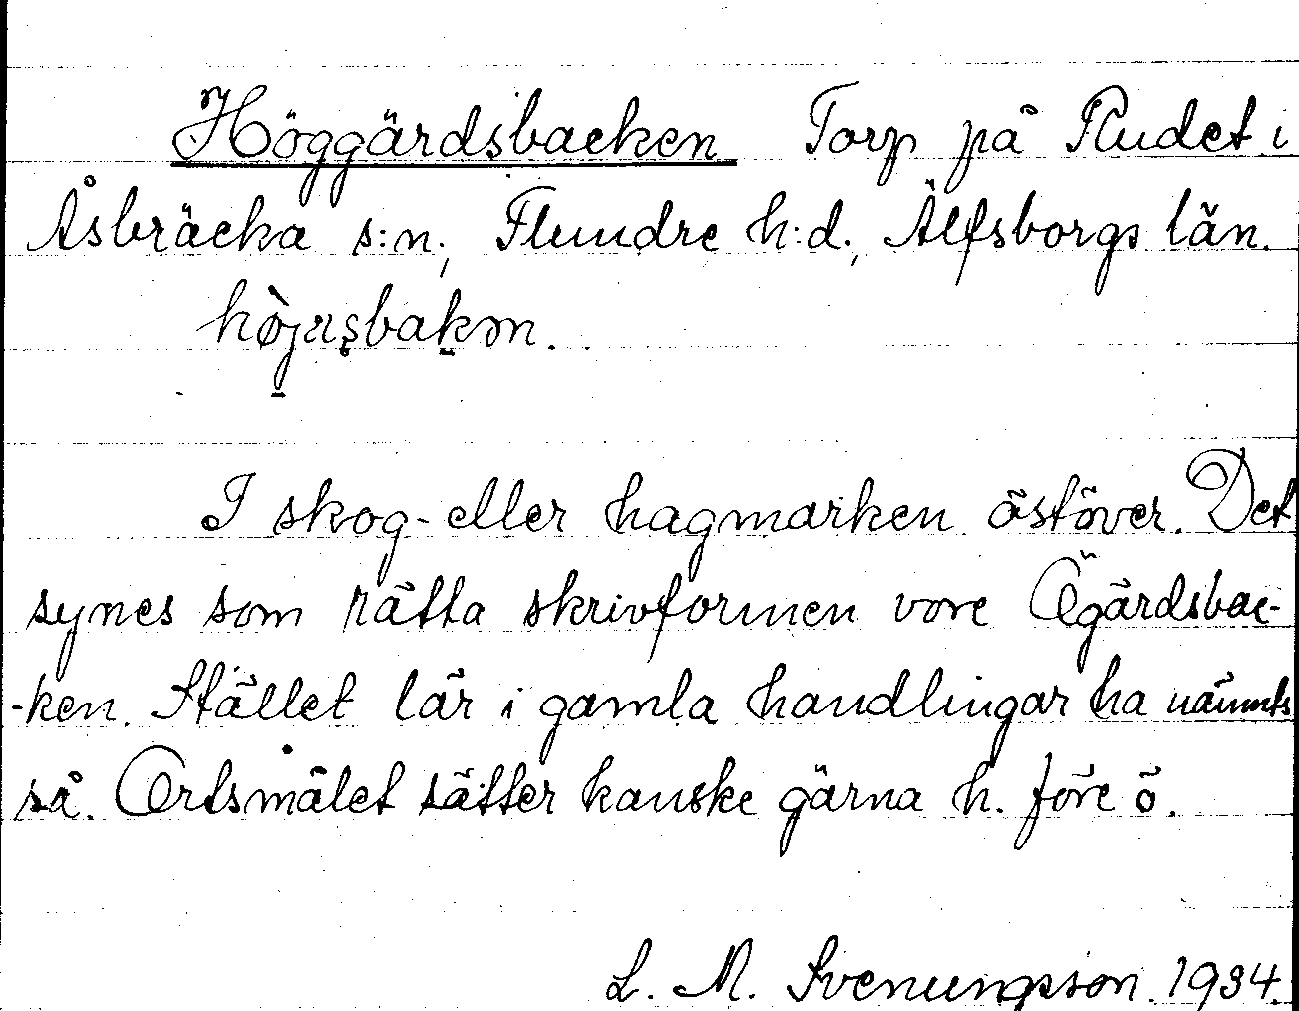 Höggärdsbacken Torp på Rudet i
Åsbräcka s:n, Flundre h:d, Älfsborgs län.
I skog- eller hagmarken östöver. Det
synes som rätta skrivformen vore Ögärdsbac-
-ken. Stället lär i gamla handlingar ha nämnts
så. Ortsmålet sätter kanske gärna h. före ö.
L. M. Svenungsson. 1934.